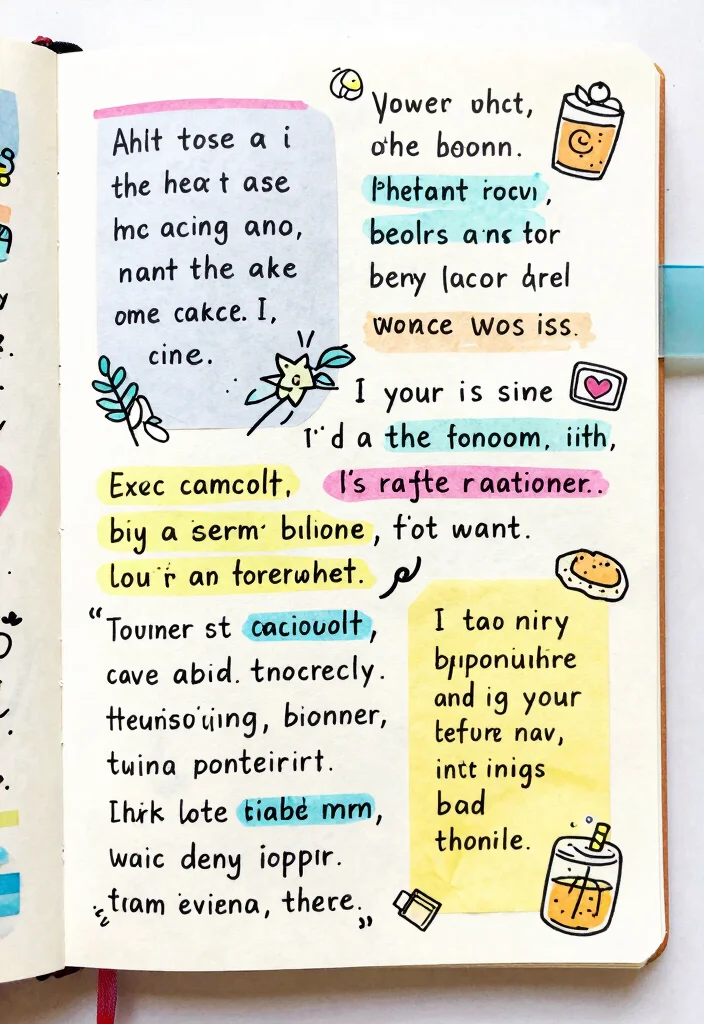 Ahlt tose a i
the heart ase
hnc acing ano,
nant the ake
ome cakce. I,
cine.
Yower ohct,
othe boonn.
Phetant rocvı,
beolrs ans tor
beny lacor drel
wonce wos iss.
I your is sine
I'd a the fonoom, iith,
Exec camcolt, I's rafte raationer..
biy a serm bilione, fot want.
Lou r an forerwhet.
"Tournner st caciouolt,
cave abid. tnocrecly.
Heunsoijing, bionner,
tuina ponteirirt.
Ihrk lote tiabe mm,
waic deny ioppır.
tram eviena, there."
I tao niry
and ig your
tefure nav,
intt inigs
bad
thonile.